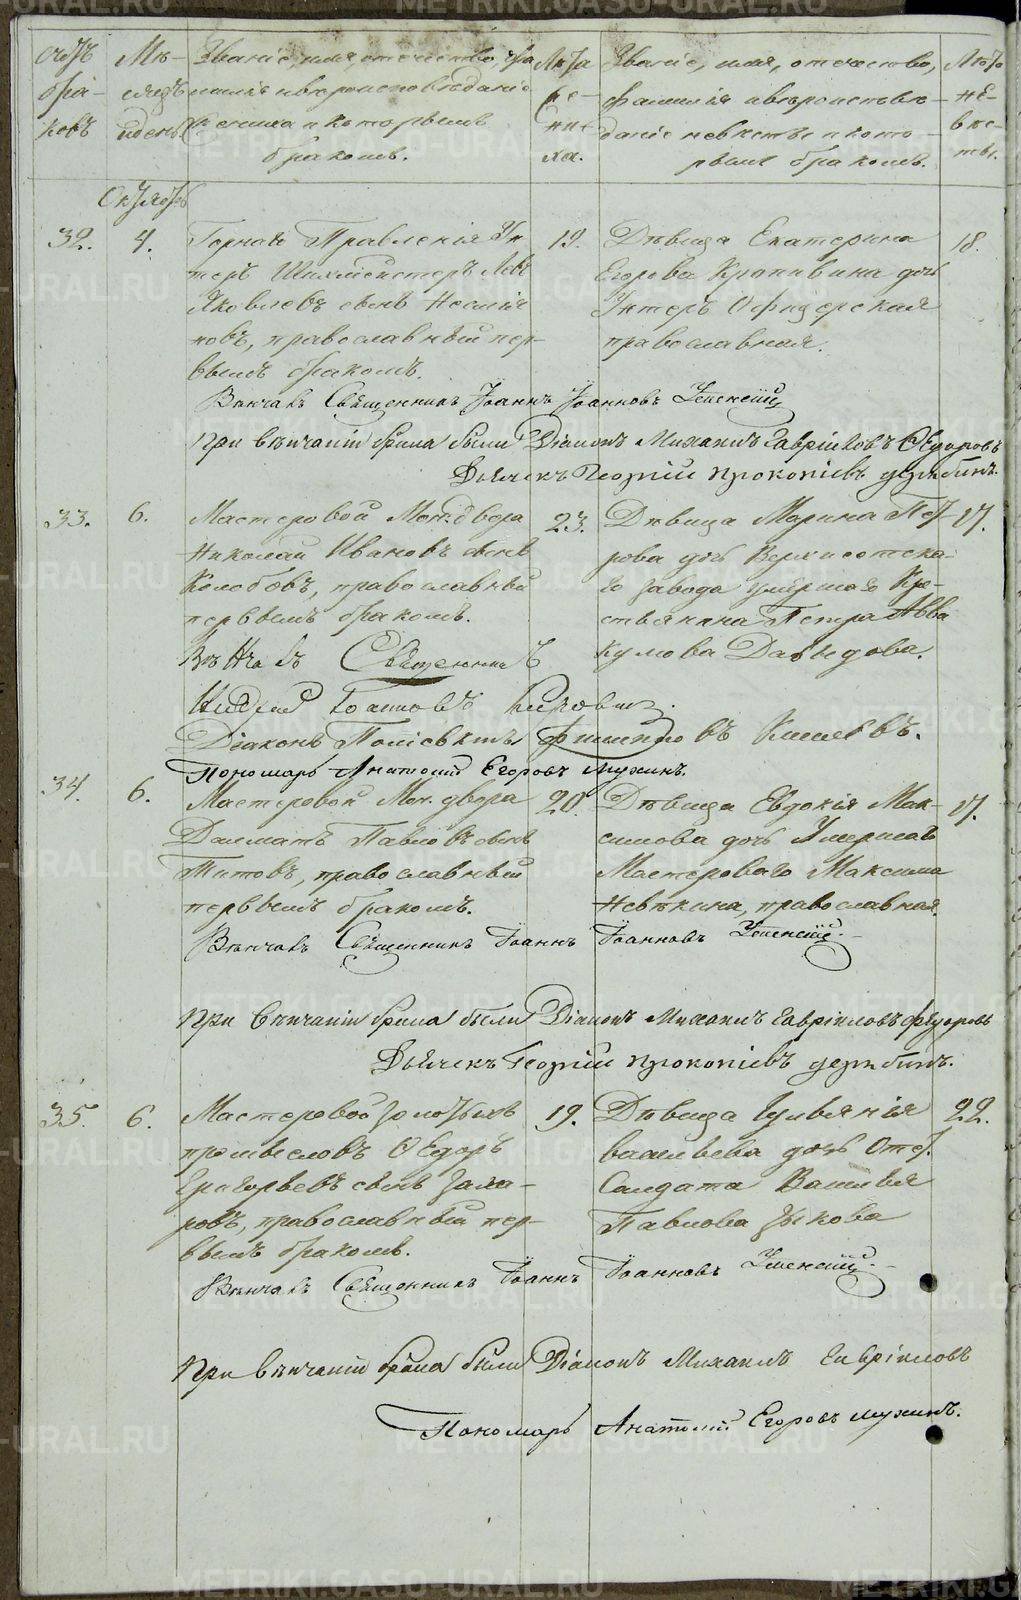 Счетъ
бра-
ковъ
Мѣ-
сяцъ
и день
Званіе, имя, отечество, фа
милія и вѣроисповѣданіе
жениха и которымъ
бракомъ.
Лѣта
же-
ни-
ха.
Званіе, имя, отечество,
фамилія и вѣроисповѣ-
даніе невѣсты и кото-
рымъ бракомъ.
Лѣта
не-
вѣс-
ты.
Октябрь
32.
4.
Горнаго Правленія Ун
теръ Шихмейстеръ Левъ
Яковлевъ сынъ
новъ, православный пер-
вымъ бракомъ.
19.
Дѣвица Екатерина
Егорова Крапивина дочь
Унтеръ Офицерская
православная.
18.
Вѣнчалъ Священникъ Іоаннъ Іоанновъ Успенскій
При вѣнчаніи брака были Діаконъ Михаилъ Гавріиловъ Ѳедоровъ
Дьячекъ Георгій Прокопіевъ Дерябинъ.
33.
6.
Мастеровой Мон. двора
Николай Ивановъ сынъ
Колобовъ, православный
первымъ бракомъ.
23.
Дѣвица Марина Пет
рова дочь Верхисетска
го завода умершаго Кре-
стьянина Петра Авва
кумова Давыдова.
17.
Вѣнчалъ Священникъ
Андрей Іоанновъ
Діаконъ
Пономарь Анатолій Егоровъ Мухинъ.
34.
6.
Мастеровой Мон. двора
Далматъ Павловъ сынъ
Титовъ, православный
первымъ бракомъ.
20.
Дѣвица Евдокія Мак-
симова дочь умершаго
Мастероваго Максима
Невѣкина, православная.
17.
Вѣнчалъ Священникъ Іоаннъ Іоанновъ Успенскій.
При вѣнчаніи брака были Діаконъ Михаилъ Гавріиловъ Ѳедоровъ
Дьячекъ Георгій Прокопіевъ Дерябинъ.
35.
6.
Мастеровой золотыхъ
промысловъ Ѳедоръ
Григорьевъ сынъ Заха-
ровъ, православный пер-
вымъ бракомъ.
19.
Дѣвица Іульянія
Васильева дочь Отс.
Солдата Василья
Павлова Зыкова
22.
Вѣнчалъ Священникъ Іоаннъ Іоанновъ Успенскій.
При вѣнчаніи брака были Діаконъ Михаилъ Гавріиловъ
Пономарь Анатолій Егоровъ Мухинъ.
METRIKI.GASO-URAL.RU